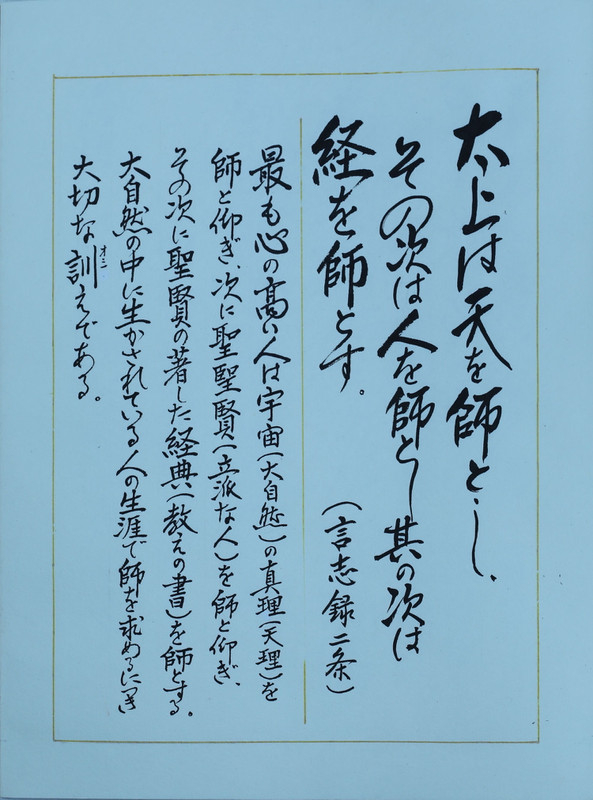 太上は天を師とし、
その次は人を師とし其の次は
経を師とす。
(言志録二条)
最も心の高い人は宇宙(大自然)の真理(天理)を
師と仰ぎ、次に聖賢(立派な人)を師と仰ぎ、
その次に聖賢の著した経典(教えの書)を師とする。
大自然の中に生かされている人の生涯で師を求めるにつき
大切な訓えである。
オシ